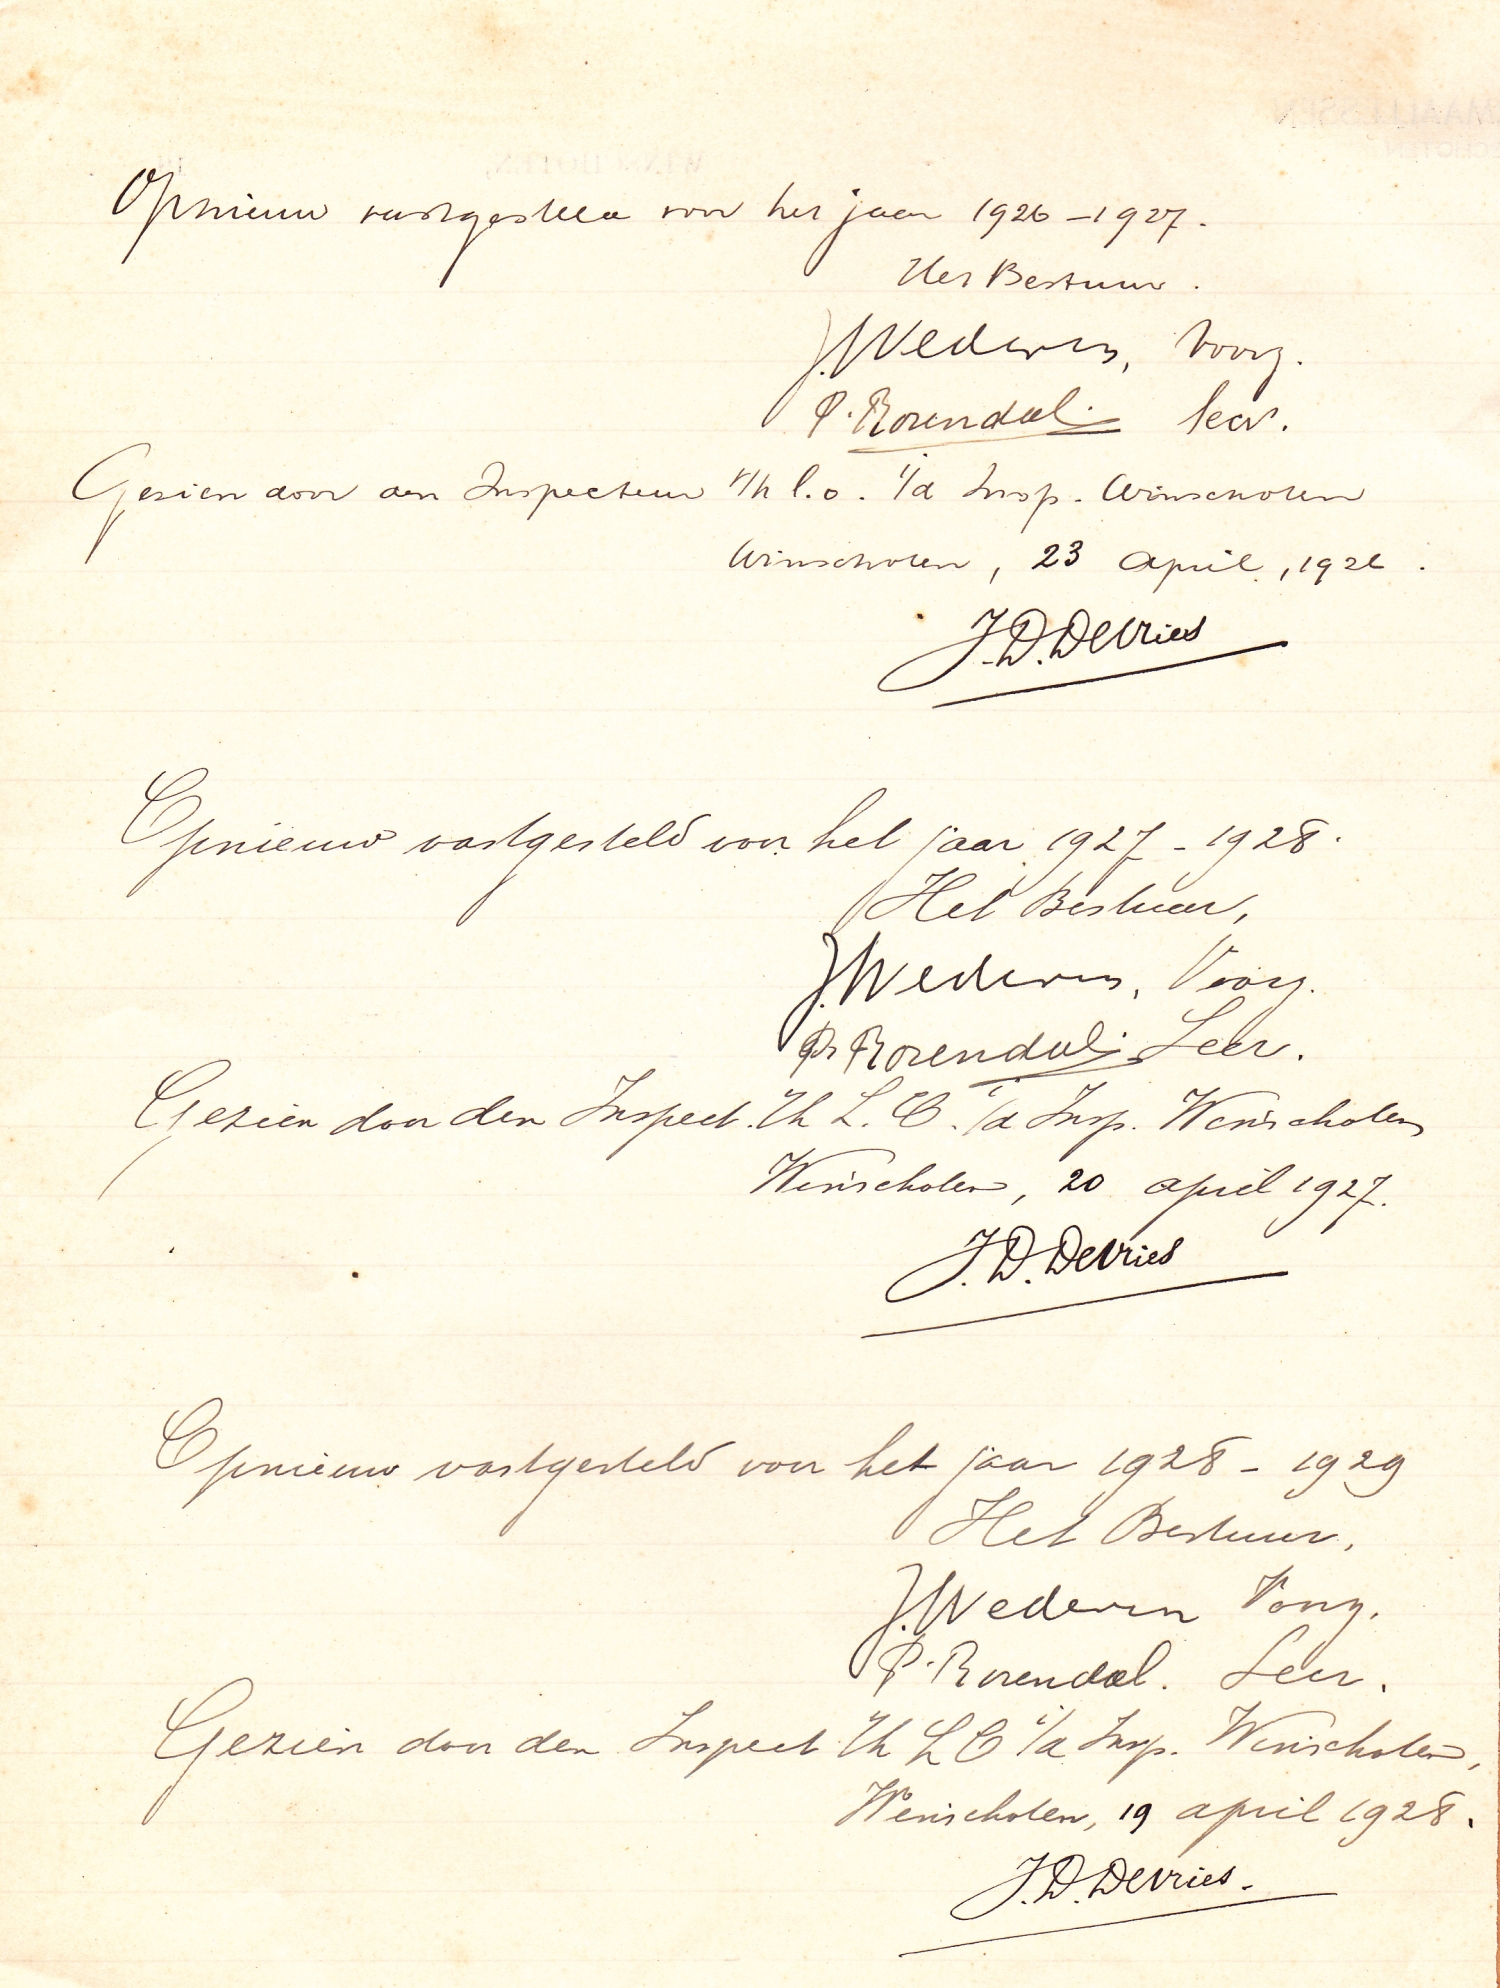 Opnieuw vastgesteld voor het jaar 1926-1927.
Het Bestuur.
J. Wederen, Voorz.
P. Rozendal. Secr.
Gezien door den Inspecteur v/h l.o. i/d Insp. Winschoten
Winschoten, 23 April, 1926.
J.D. DeVries
Opnieuw vastgesteld voor het jaar 1927-1928.
Het Bestuur,
J. Wederen, Voorz.
P. Rozendal. Secr.
Gezien door den Inspect. v/h L.O. i/d Insp. Winschoten
Winschoten, 20 april 1927.
J.D. DeVries
Opnieuw vastgesteld voor het jaar 1928-1929
Het Bestuur,
J. Wederen Voorz.
P. Rozendal. Secr.
Gezien door den Inspect v/h L O i/d Insp. Winschoten,
Winschoten, 19 april 1928.
J.D. DeVries.